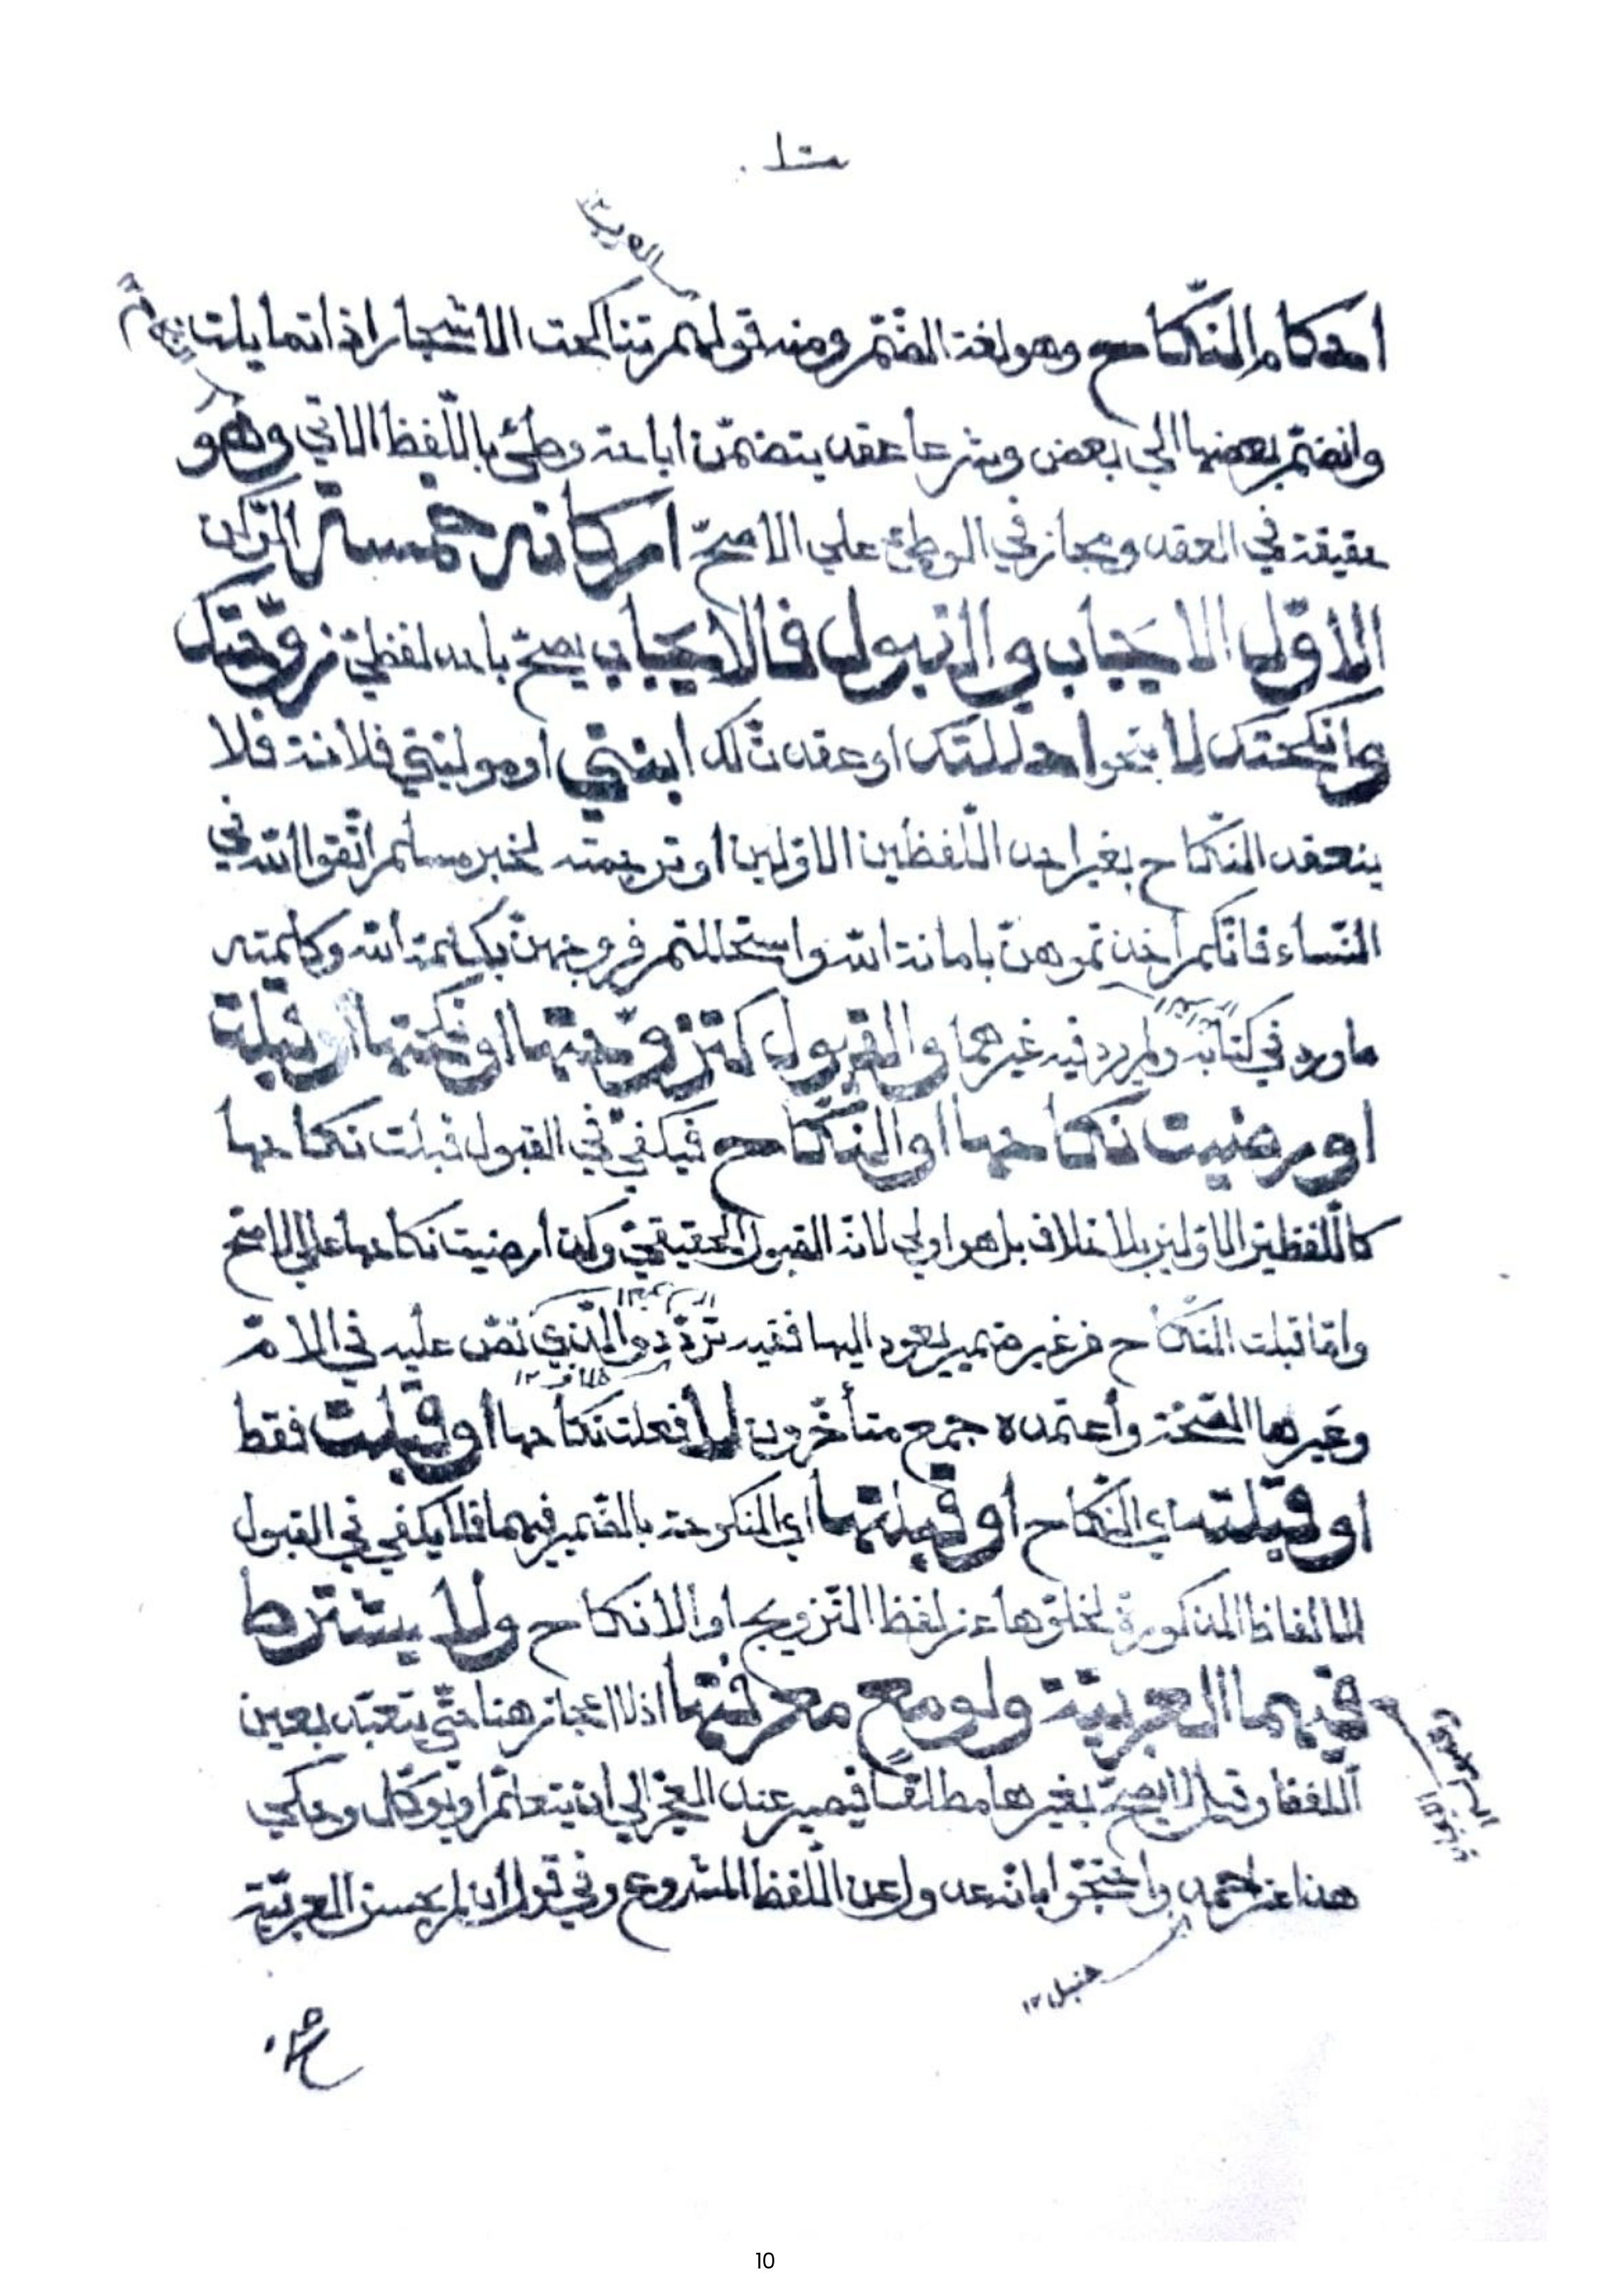 احكام النّكاح وهو لغة الضّمّ ومنه قولهم تناكحت الاشجار اذا تمايلت
وانضمّ بعضها الي بعض وشرعا عقد يتضمّن اباحة وطئ باللّفظ الاتي وهو
حقيقة في العقد ومجاز في الوطئ علي الاصحّ اركانه خمسة الرّكن
الاوّل الايجاب والقبول فالايجاب يصحّ باحد لفظيّ زوّجتك
وانكحتك لا بنحو احللتك او عقدت لك ابنتي او موليتي فلانة فلا
ينعقد النّكاح بغير احد اللّفظين الاوّلين او ترجمته لخبر مسلم اتّقوا الله في
النّساء فانّكم اخذتموهنّ بامانة الله واستحللتم فروجهنّ بكلمة الله وكلمته
ما ورد في كتابه ولم يرد فيه غيرهما والقبول كتزوّجتها او نكحتها او قبلت
او رضيت نكاحها او النّكاح فيكفي في القبول قبلت نكاحها
كاللّفظين الاوّلين بلا خلاف بل هو اولي لانّه القبول الحقيقيّ وكذا رضيت نكاحها علي الاصحّ
وامّا قبلت النّكاح من غير ضمير يعود اليها ففيه تردّد والّذي نصّ عليه في الامّ
وغيرها الصّحّة واعتمده جمع متأخّرون لا فعلت نكاحها او قبلت فقط
او قبلته اي النّكاح او قبلتها اي المنكوحة بالضّمير فيهما فلا يكفي في القبول
الالفاظ المذكورة لخلوّها عن لفظ التّزويج او الانكاح ولا يشترط
فيهما العربيّة ولو مع معرفتها اذ لا اعجاز هنا حتّي يتعبّد بعين
اللّفظ وقيل لا يصحّ بغيرها مطلقا فيصير عند العجز الي ان يتعلّم او يوكّل وحكي
هذا عن احمد واحتجّوا بانّه عدول عن اللّفظ المشروع وفي قول ان لم يحسن العربيّة
حنبل ١٢
10